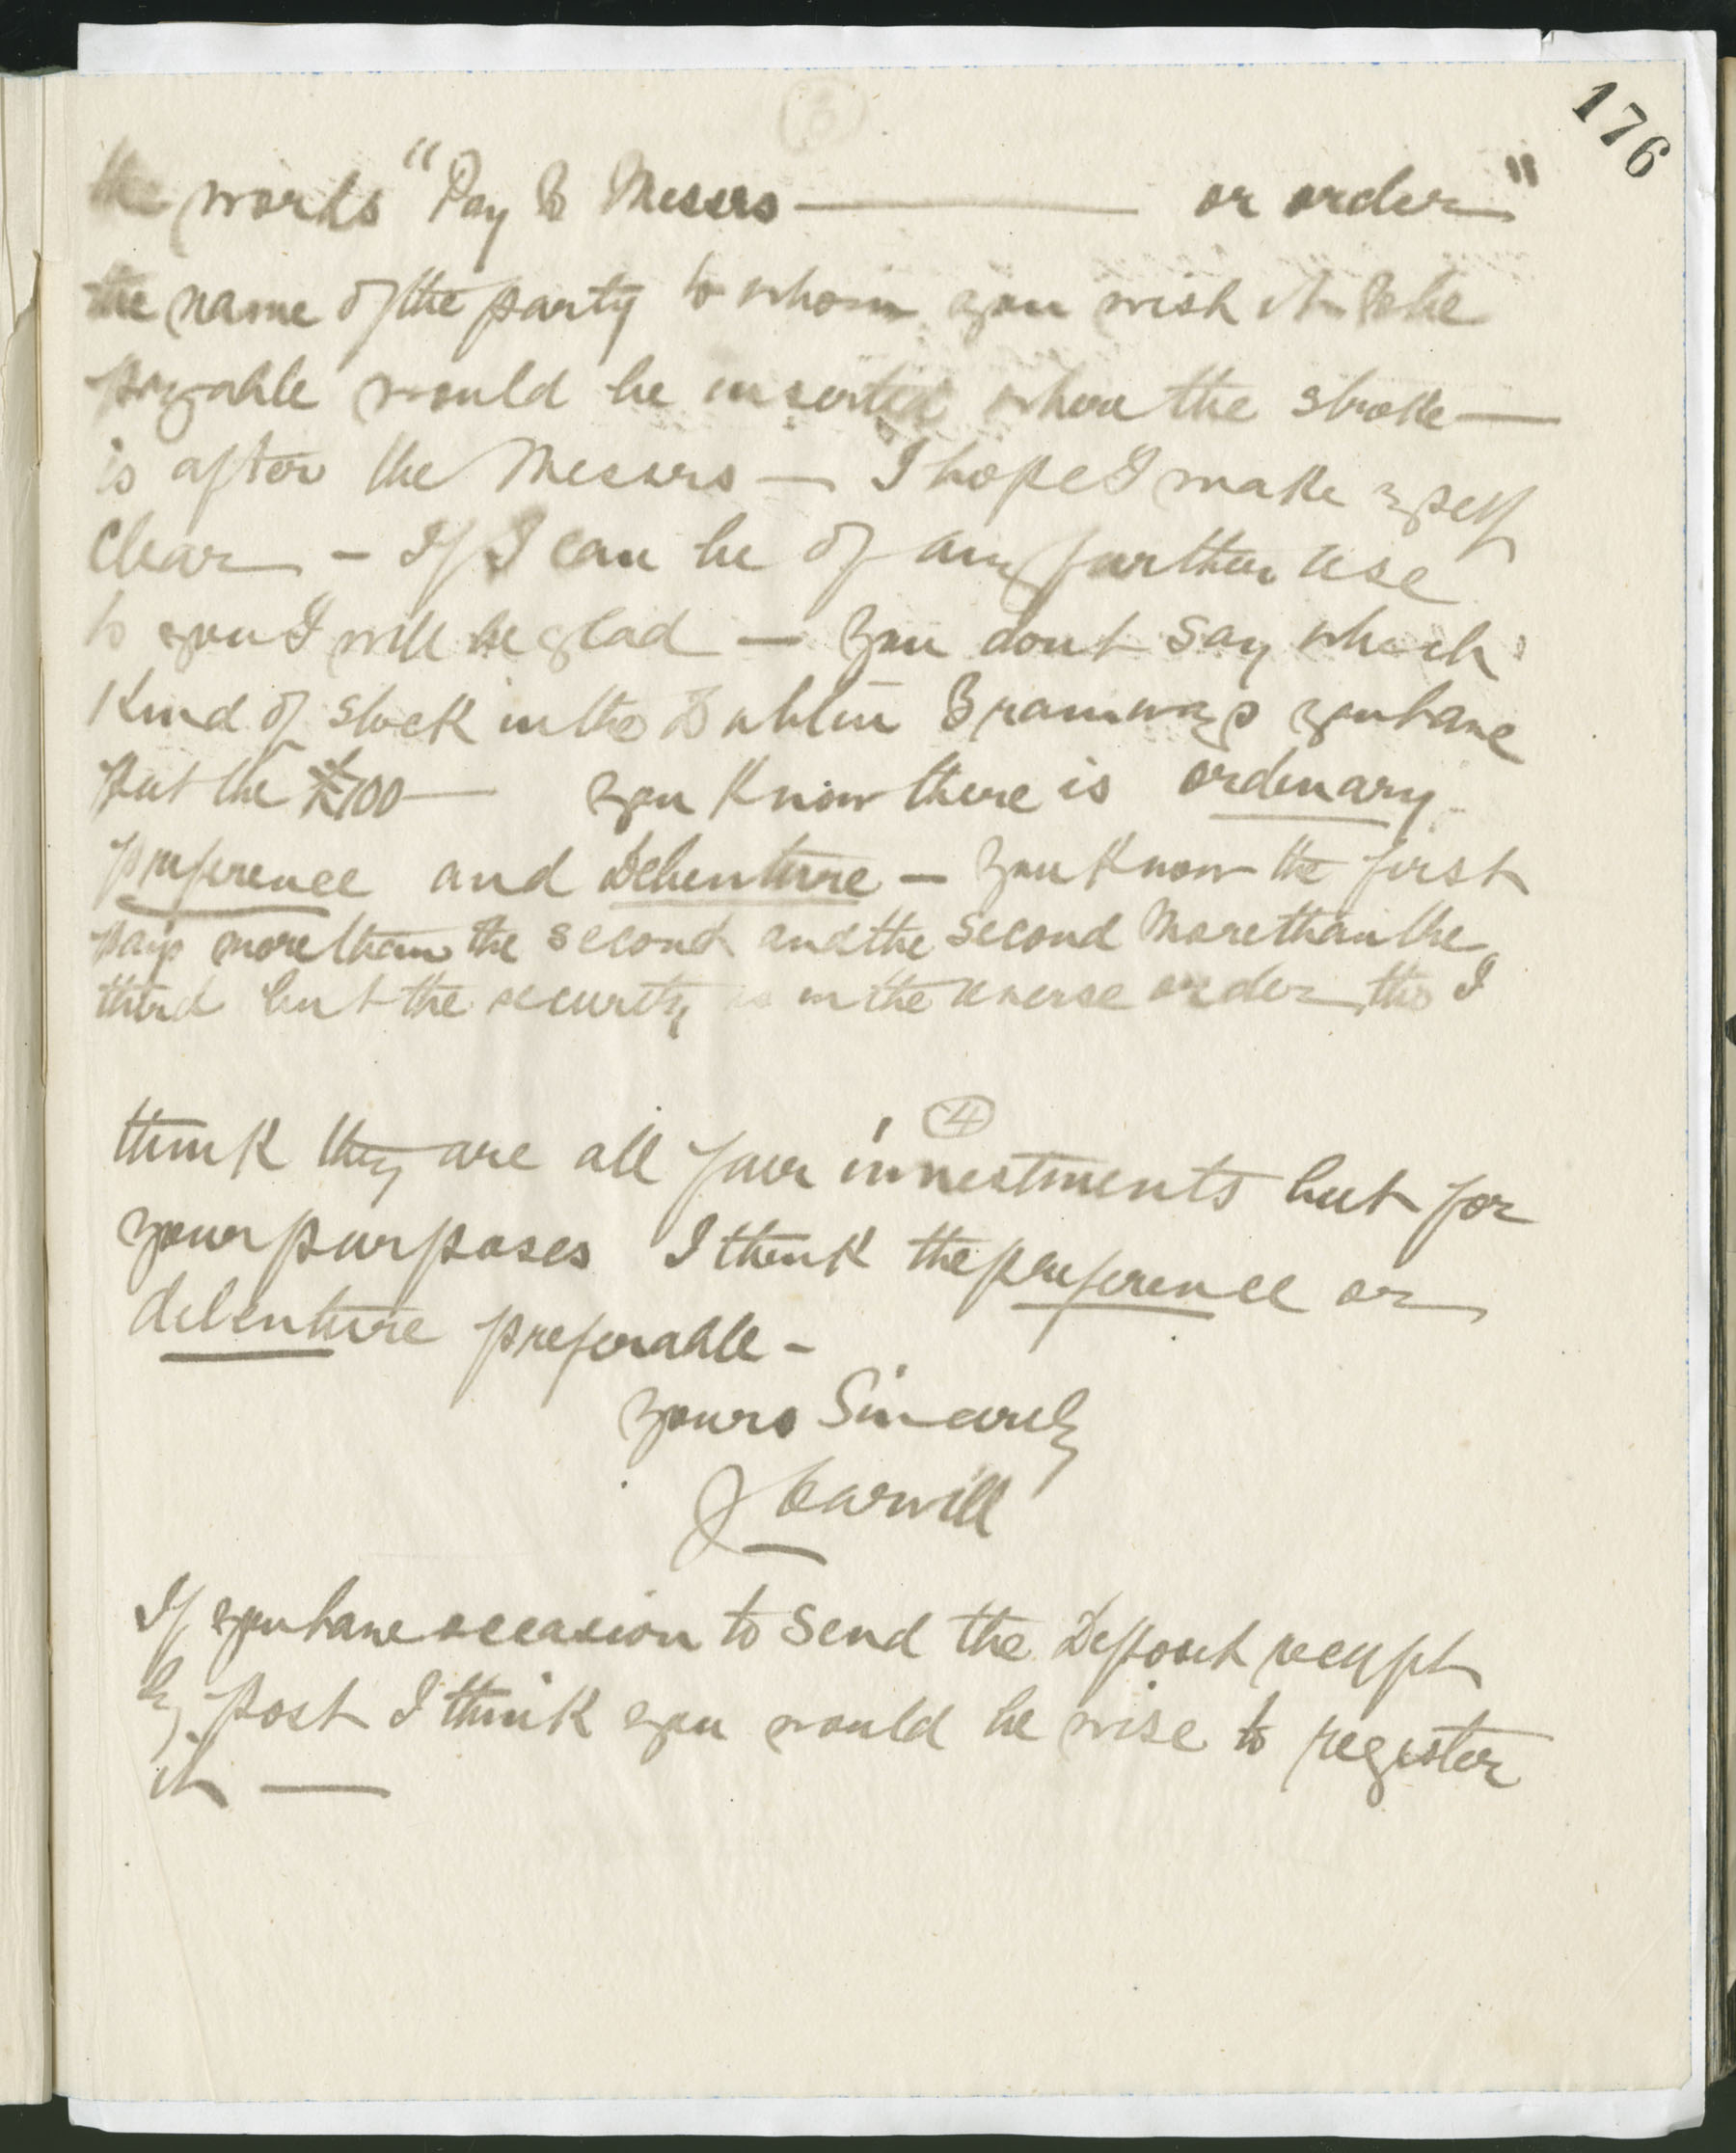 176
(3)
the words "Pay to Messrs ——— or order"
the name of the party to whom you wish it to be
payable would be inserted where the stroke —
is after the Messrs — I hope I make myself
clear — If I can be of any further use
to you I will be glad — you dont say which
Kind of stock in the Dublin Tramways you have
put the £100 — you know there is ordinary
preference and Debenture — you know the first
pays more than the second and the second more than the
third but the security is in the reverse order tho I
(4)
think they are all fair investments but for
your purposes I think the preference or
debenture preferable —
yours Sincerely
J Carvill
If you have occasion to send the Deposit receipt
by post I think you would be wise to register
it —